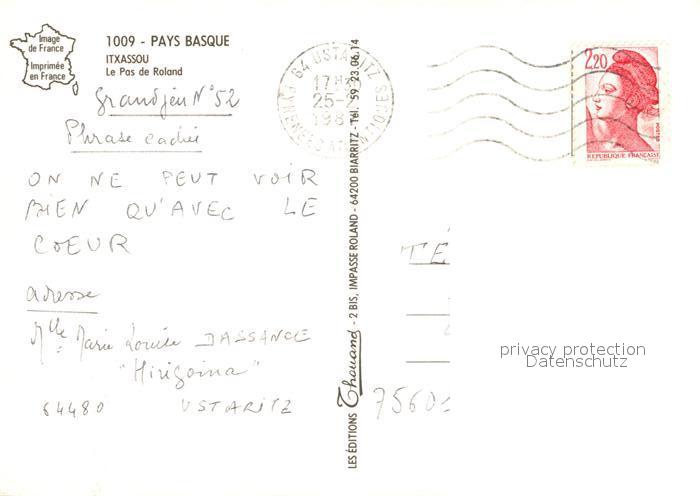 Image
de France
Imprimée
en France
1009 - PAYS BASQUE
ITXASSOU
Le Pas de Roland
Grand jeu N°52
Phrase cachée
ON NE PEUT VOIR
BIEN QU'AVEC LE
COEUR
adresse
Mlle Marie Louise DASSANCE
"Hirigoina"
64480 USTARITZ
LES ÉDITIONS Thouand - 2 BIS, IMPASSE ROLAND - 64200 BIARRITZ - Tél. 59 23.06.14
64 USTARITZ
17H
25-
198
PYRENEES ATLANTIQUES
2,20
REPUBLIQUE FRANÇAISE
TÉ
7560
privacy protection
Datenschutz